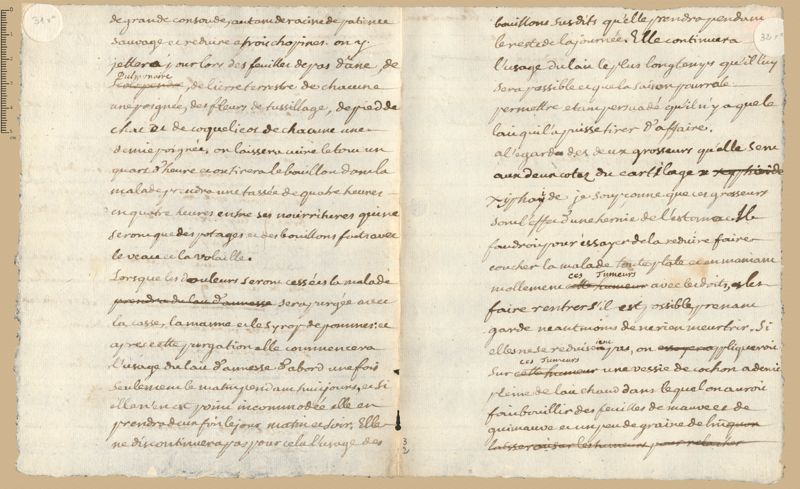 de grande consoude, autant de racine de patience
sauvage et reduire a trois chopines. on y
jettera pour lors des feuilles de pas d'ane, de
Pulmonaire
scolopendre, de lierre terrestre de chacune
une poignée, des fleurs de tussillage, de pied de
chat et de coquelicot de chacune une
demie poignée, on laissera cuire le tout un
quart d'heure et on tirera le bouillon dont la
malade prendra une tassée de quatre heures
en quatre heures entre ses nourritures qui ne
seront que des potages et des bouillons faits avec
le veau et la volaille.
Lorsque les douleurs seront cessées la malade
prendra du lait d'annesse sera purgée avec
la casse, la manne et le syrop de pommes. et
apres cette purgation elle commencera
l'usage du lait d'annesse d'abord une fois
seulement le matin pendant huit jours, et si
elle n'en est point incommodée elle en
prendra deux fois le jour matin et soir. Elle
ne discontinuera pas pour cela l'usage des
bouillons susdits qu'elle prendra pendant
le reste de la journée. Elle continuera
l'usage du lait le plus longtemps qu'il luy
sera possible et que la saison pourra le
permettre etant persuadé qu'il n'y a que le
lait qui la puisse tirer d'affaire.
a l'egard des deux grosseurs qu'elle sent
aux deux cotez du cartilage xyphoide
xyphoÿde je soupçonne que ces grosseurs
sont l'effet d'une hernie de l'estomac. Il
faudroit pour essayer de la reduire faire
coucher la malade toute plate et en maniant
ces Tumeurs
mollement cette tumeur avec les doits, les
faire rentrer s'il est possible prenant
garde neautmoins de ne rien meurtrir. Si
elles ne se reduisoient pas, on essayera appliqueroit
ces Tumeurs
sur cette tumeur une vessie de cochon a demi
pleine de lait chaud dans lequel on auroit
fait bouillir des feuilles de mauve et de
guimauve et un peu de graine de lin
laisseroit sur les tumeurs pour relacher
31 r°
32 r°
32